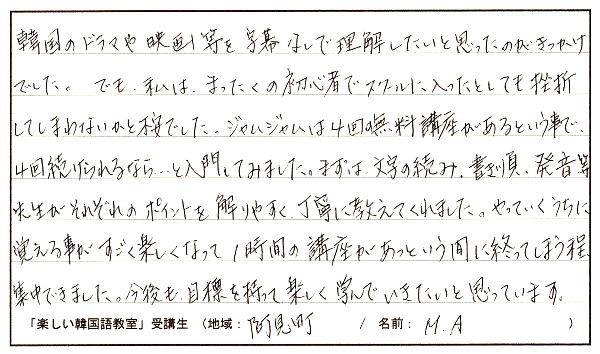 韓国のドラマや映画等を字幕なしで理解したいと思ったのがきっかけ
でした。でも、私は、まったくの初心者でスクールに入ったとしても挫折
してしまわないかと不安でした。ジャムジャムは4回の無料講座があるという事で、
4回続けられるなら…と入門してみました。まずは、文字の読み、書き順、発音等
先生がそれぞれのポイントを解りやすく、丁寧に教えてくれました。やっていくうちに
覚える事がすごく楽しくなって1時間の講座があっという間に終ってしまう程、
集中できました。今後も目標を持って楽しく学んでいきたいと思っています。
「楽しい韓国語教室」受講生 （地域：阿見町 / 名前：M.A ）